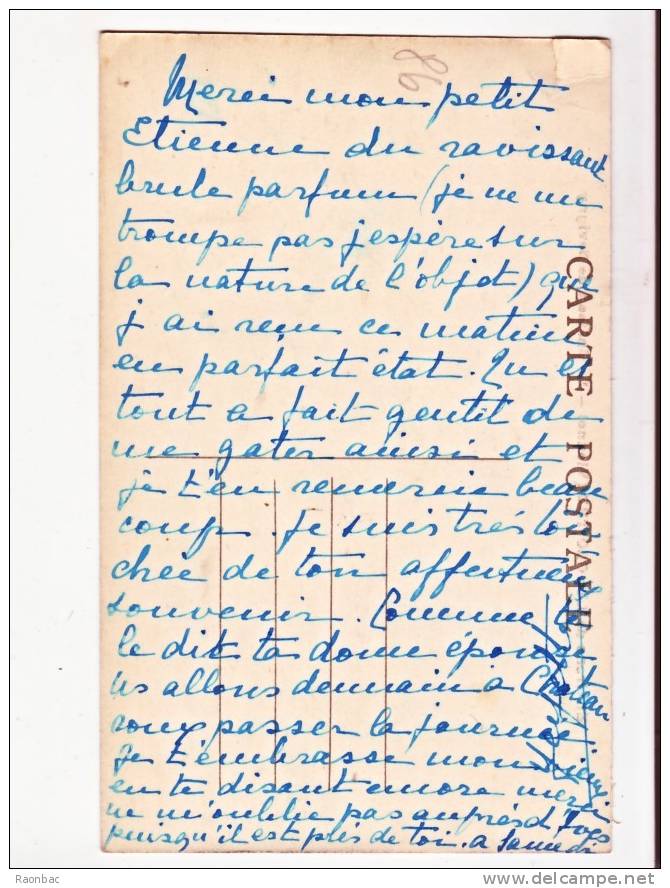 86
Merci mon petit
Etienne du ravissant
brule parfum (je ne me
trompe pas j'espère sur
la nature de l'objet) que
j'ai reçu ce matin
en parfait état. Tu es
tout a fait gentil de
me gater ainsi et
je t'en remercie beau
coup. Je suis très tou
chée de ton affectueux
souvenir. Comme te
le dit ta dome épouse
ns allons demain a Chateau
roux passer la journée.
Je t'embrasse mon
en te disant encore merci
ne m'oublie pas auprès d'Yves
puisqu'il est près de toi. a Samedi
CARTE POSTALE
Raonbac
delcampe.net